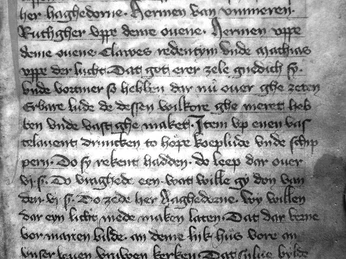 her haghedorne. Hermen van vmmeren.
Ruthgher vppe deme ouene. Hermen vppe
deme ouene Clawes redentyn vnde mathias
vppe der lucht. Dat got erer zele gnedich sy.
vnde vortmer so hebben dar nu ouer ghe zeten
Erbare lude de dessen willkore ghe meret heb
ben vnde vast ghe maket. Item vp enen vas
telauent druncken to hope koeplude vnde schip
pern. Do sy rekent hadden. do leep dar ouer
vj. s. Do vraghede een wat wille gy don van
den vj s. Do zede her haghedorne. Wy willen
dar eyn licht mede maken laten. Dat dar berne
vor marien bilde. an deme lik hus vore an
vnser leuen vrouwen kerken Dat sulue bylde